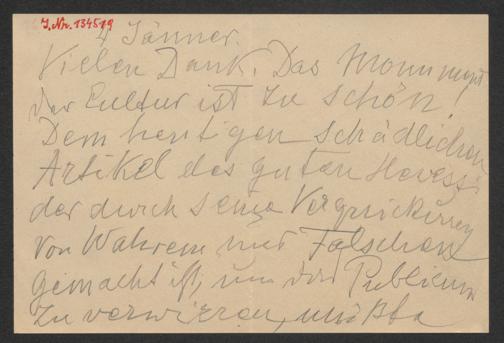 J. Nr. 134519
4 Jänner.
Vielen Dank. Das Monument
der Cultur ist zu schön!
Dem heutigen schädlichen
Artikel des guten Hevesi
der durch seine Verquickung
von Wahrem und Falschem
gemacht ist, um das Publicum
zu verwirren, müßte